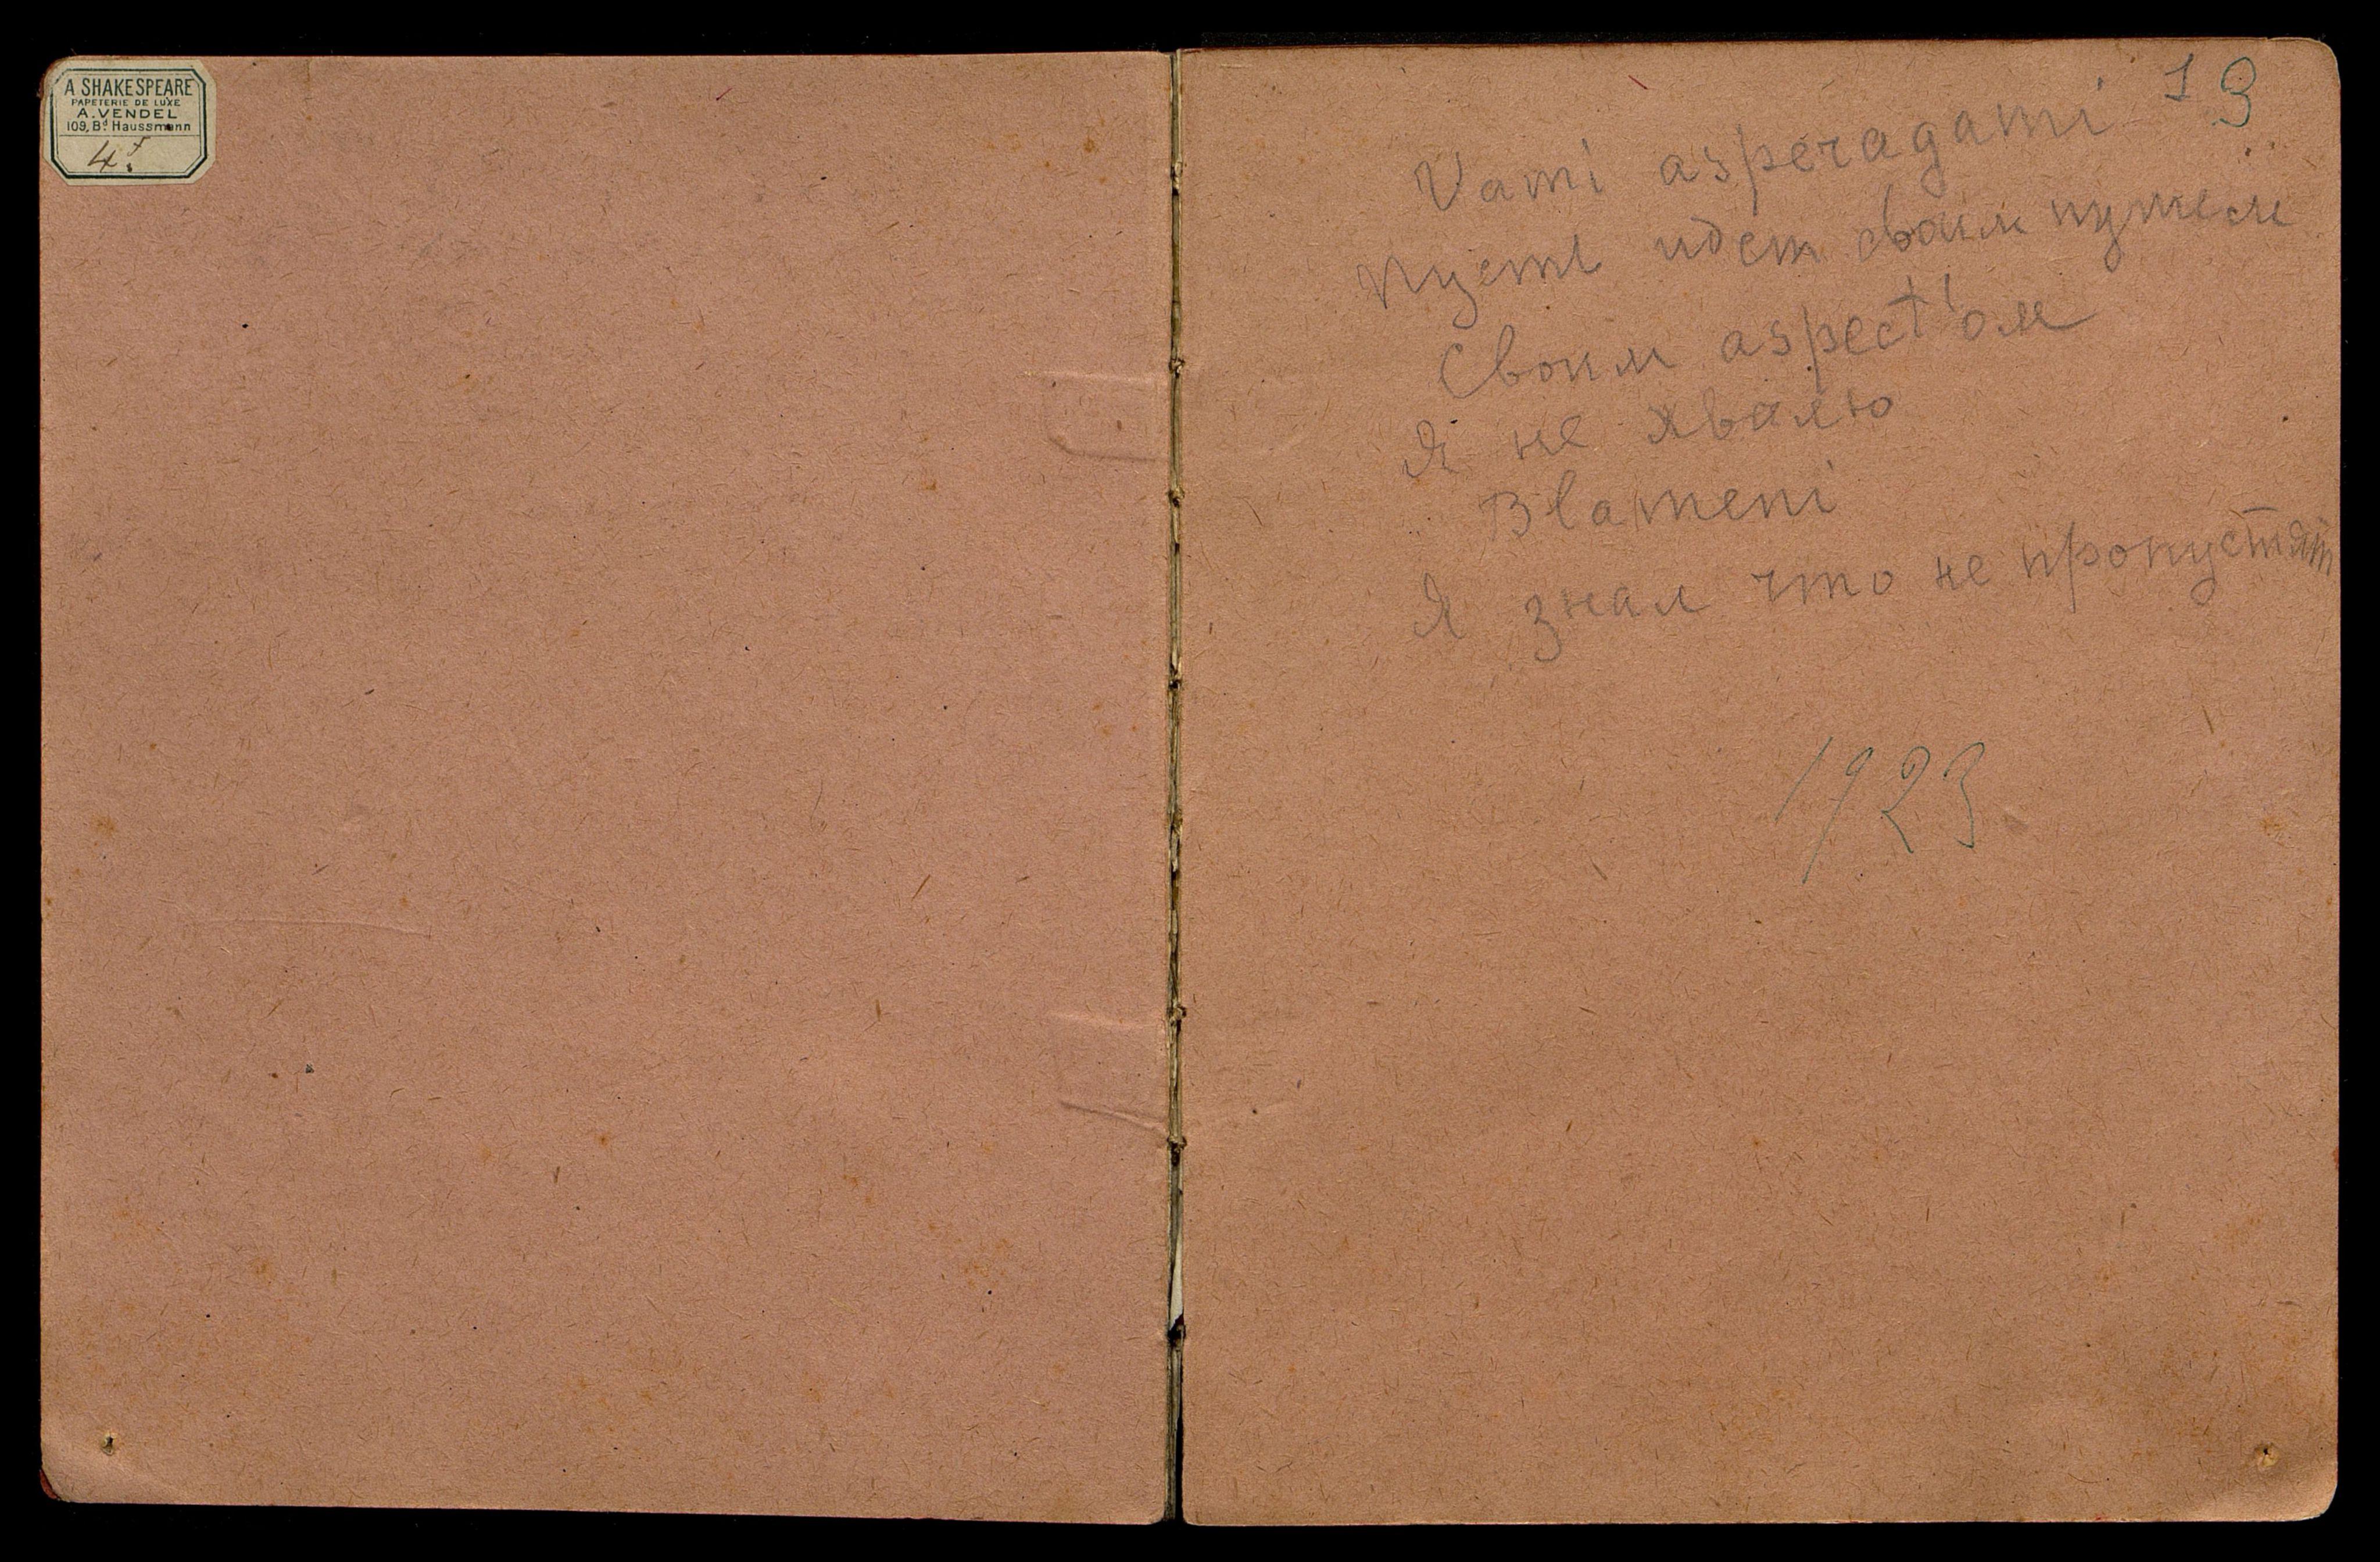 A SHAKESPEARE
PAPETERIE DE LUXE
A. VENDEL
109, Bd. Haussmann
4f.
1 9
Vami asperagami
Пусть идет своим путем
Своим aspect'ом
Я не хвалю
Blameni
Я знал что не пропустят
1923